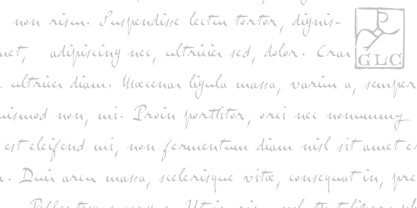 non risus. Suspendisse lectus tortor, dignis-
met, adipiscing nec, ultricies sed, dolor. Cras
GLC
ultrices diam. Maecenas ligula massa, varius a, semper
uismod non, mi. Proin porttitor, orci nec nonummy
est eleifend mi, non fermentum diam nisl sit amet e
. Duis arcu massa, scelerisque vitae, consequat in, pre